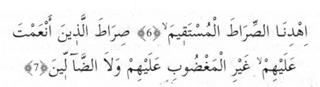 اِهْدِنَا الصِّرَاطَ الْمُسْتَقٖيمَۙ ﴿6﴾ صِرَاطَ الَّذٖينَ اَنْعَمْتَ
عَلَيْهِمْۙ غَيْرِ الْمَغْضُوبِ عَلَيْهِمْ وَلَا الضَّٓالّٖينَ ﴿7﴾